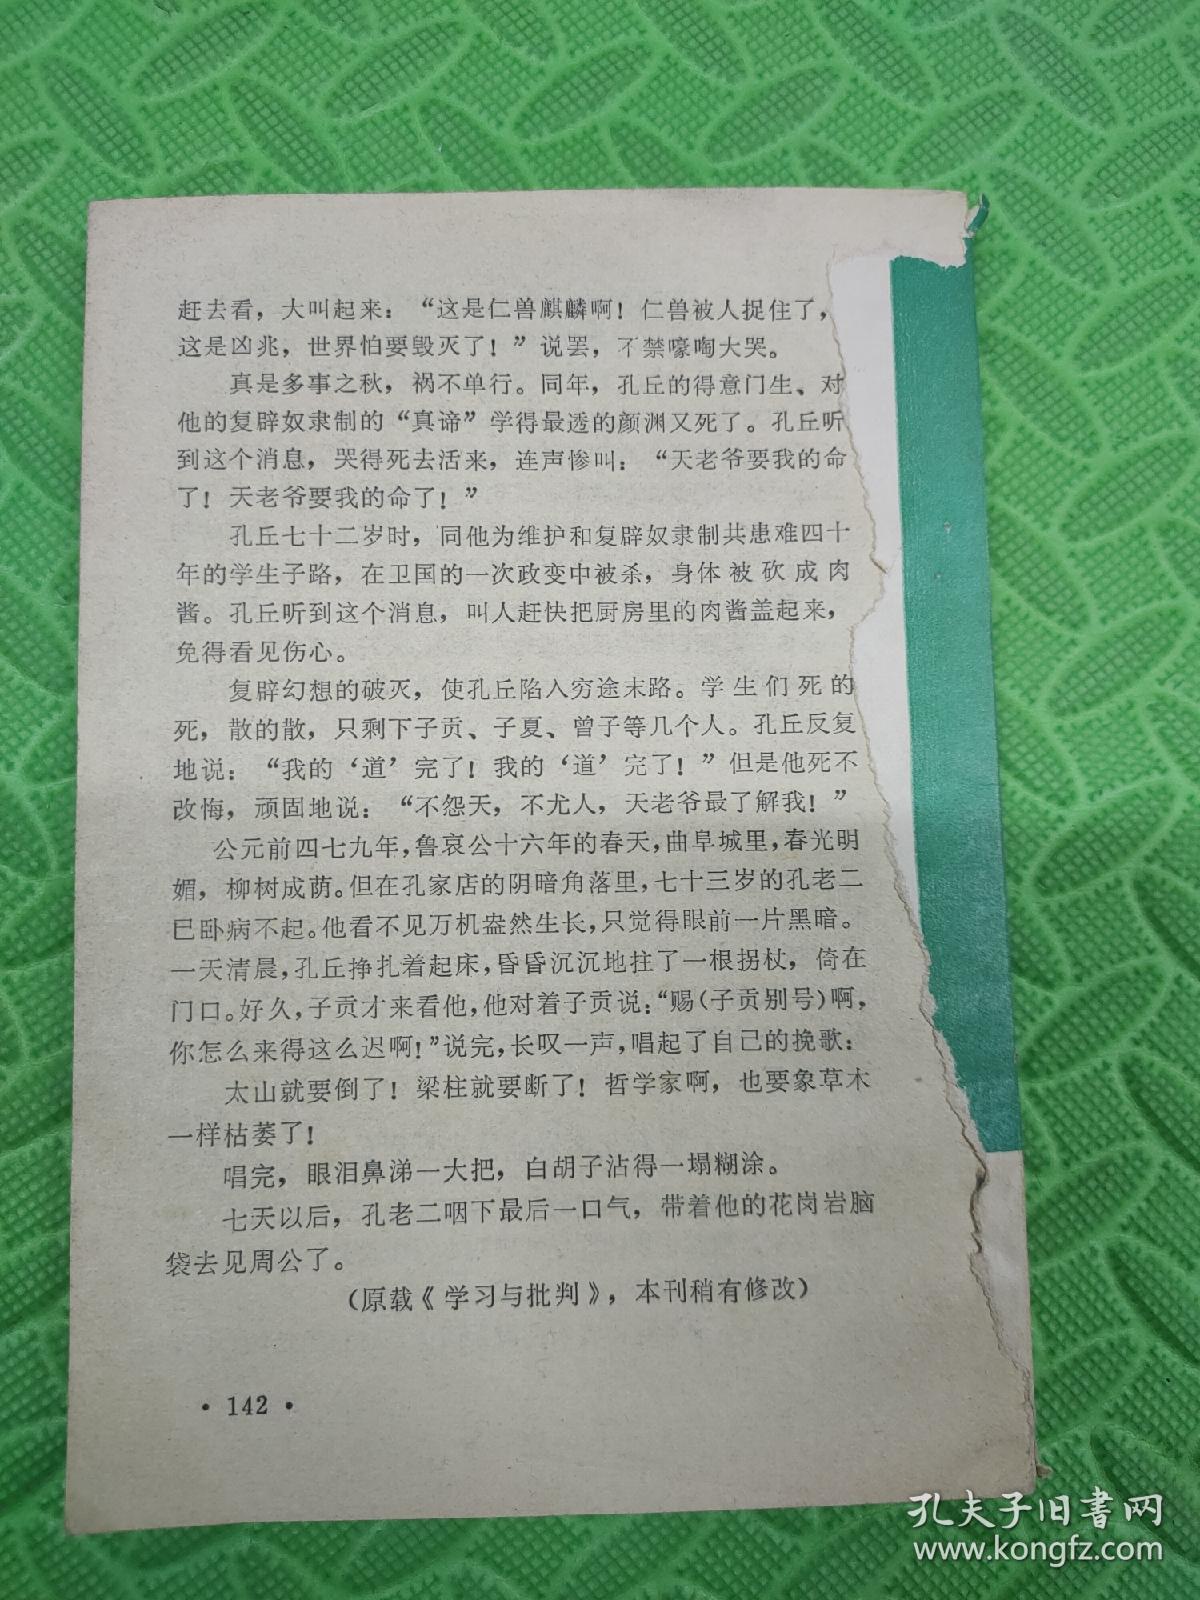 赶去看，大叫起来：“这是仁兽麒麟啊！仁兽被人捉住了，
这是凶兆，世界怕要毁灭了！”说罢，不禁嚎啕大哭。
真是多事之秋，祸不单行。同年，孔丘的得意门生、对
他的复辟奴隶制的“真谛”学得最透的颜渊又死了。孔丘听
到这个消息，哭得死去活来，连声惨叫：“天老爷要我的命
了！天老爷要我的命了！”
孔丘七十二岁时，同他为维护和复辟奴隶制共患难四十
年的学生子路，在卫国的一次政变中被杀，身体被砍成肉
酱。孔丘听到这个消息，叫人赶快把厨房里的肉酱盖起来，
免得看见伤心。
复辟幻想的破灭，使孔丘陷入穷途末路。学生们死的
死，散的散，只剩下子贡、子夏、曾子等几个人。孔丘反复
地说：“我的‘道’完了！我的‘道’完了！”但是他死不
改悔，顽固地说：“不怨天，不尤人，天老爷最了解我！”
公元前四七九年，鲁哀公十六年的春天，曲阜城里，春光明
媚，柳树成荫。但在孔家店的阴暗角落里，七十三岁的孔老二
已卧病不起。他看不见万机盎然生长，只觉得眼前一片黑暗。
一天清晨，孔丘挣扎着起床，昏昏沉沉地拄了一根拐杖，倚在
门口。好久，子贡才来看他，他对着子贡说：“赐（子贡别号）啊，
你怎么来得这么迟啊！”说完，长叹一声，唱起了自己的挽歌：
太山就要倒了！梁柱就要断了！哲学家啊，也要象草木
一样枯萎了！
唱完，眼泪鼻涕一大把，白胡子沾得一塌糊涂。
七天以后，孔老二咽下最后一口气，带着他的花岗岩脑
袋去见周公了。
（原载《学习与批判》，本刊稍有修改）
·142·
孔夫子旧书网
www.kongfz.com